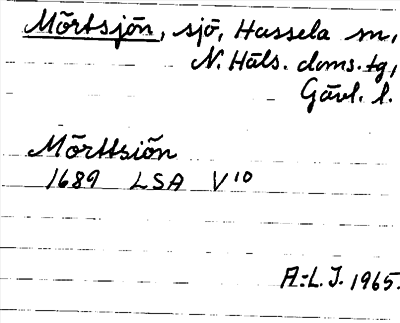 Mörtsjön, sjö, Hassela sn,
N. Häls. doms. tg,
Gävl. l.
Mörttsiön
1689 LSA V10
A.-L. J. 1965.